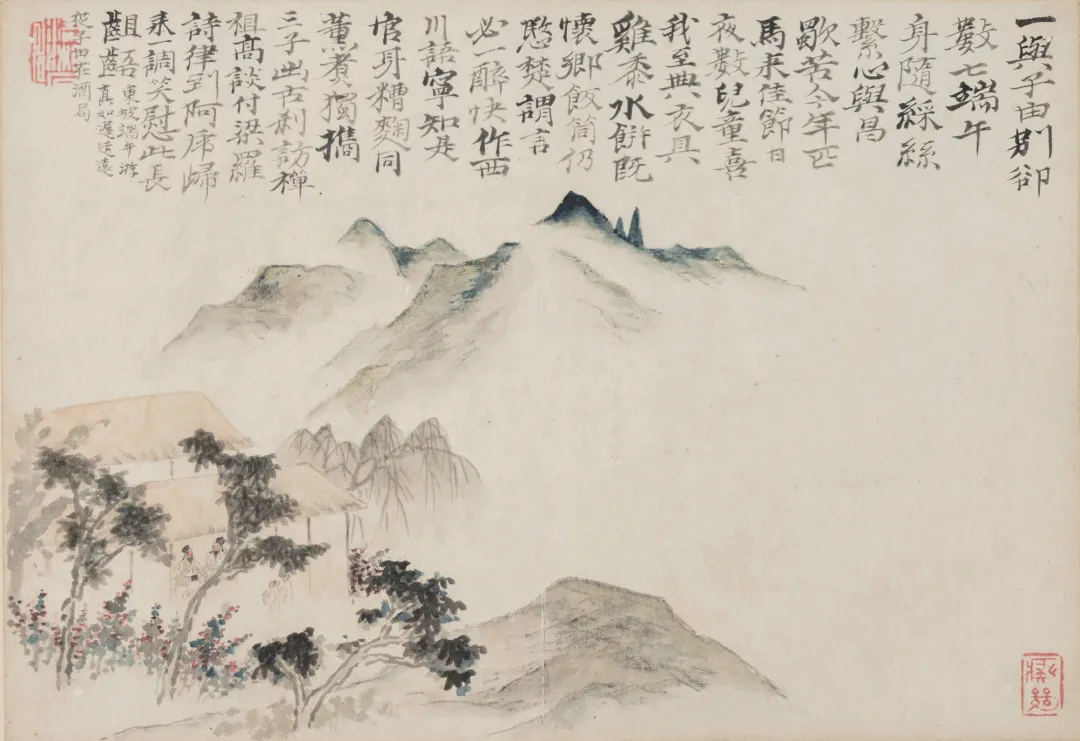 一與子由別卻
數七端午
身隨綵絲
繫心與昌
歜苦今年匹
馬來佳節日
夜數兒童喜
我至典衣具
雞黍水餅既
懷鄉飯筒仍
愍楚謂言
必一醉快作西
川語寧知是
官身糟麴同
薰煮獨攜
三子出古剎訪禪
祖高談付梁羅
詩律到阿虎歸
來一調笑慰此長
齟齬
東坡端午游
真如遲适遠
從子由在酒局